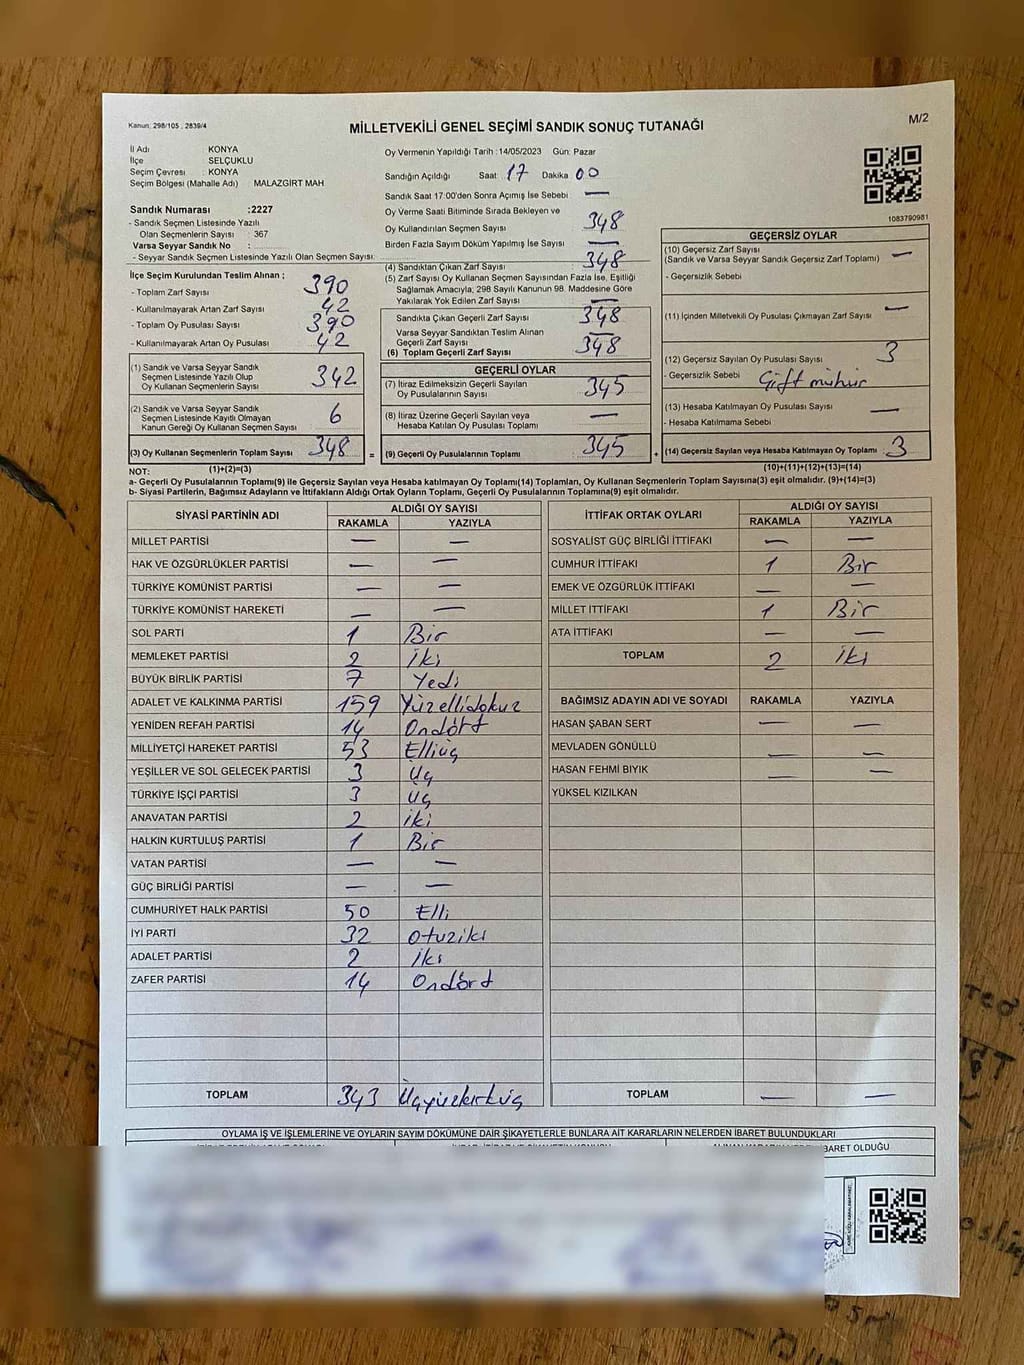 Kanun: 298/105 , 2839/4
MİLLETVEKİLİ GENEL SEÇİMİ SANDIK SONUÇ TUTANAĞI
M/2
İl Adı KONYA
İlçe SELÇUKLU
Seçim Çevresi : KONYA
Seçim Bölgesi (Mahalle Adı) MALAZGİRT MAH
Sandık Numarası :2227
- Sandık Seçmen Listesinde Yazılı
Olan Seçmenlerin Sayısı : 367
Varsa Seyyar Sandık No :
- Seyyar Sandık Seçmen Listesinde Yazılı Olan Seçmen Sayısı:
Oy Vermenin Yapıldığı Tarih :14/05/2023 Gün: Pazar
Sandığın Açıldığı Saat : 17 Dakika : 00
Sandık Saat 17:00'den Sonra Açımış İse Sebebi —
Oy Verme Saati Bitiminde Sırada Bekleyen ve
Oy Kullandırılan Seçmen Sayısı 348
Birden Fazla Sayım Döküm Yapılmış İse Sayısı —
1083790981
İlçe Seçim Kurulundan Teslim Alınan ;
- Toplam Zarf Sayısı 390
- Kullanılmayarak Artan Zarf Sayısı 42
- Toplam Oy Pusulası Sayısı 390
- Kullanılmayarak Artan Oy Pusulası 42
(1) Sandık ve Varsa Seyyar Sandık
Seçmen Listesinde Yazılı Olup
Oy Kullanan Seçmenlerin Sayısı 342
(2) Sandık ve Varsa Seyyar Sandık
Seçmen Listesinde Kayıtlı Olmayan
Kanun Gereği Oy Kullanan Seçmen Sayısı 6
(3) Oy Kullanan Seçmenlerin Toplam Sayısı 348 =
(4) Sandıktan Çıkan Zarf Sayısı 348
(5) Zarf Sayısı Oy Kullanan Seçmen Sayısından Fazla İse, Eşitliği
Sağlamak Amacıyla; 298 Sayılı Kanunun 98. Maddesine Göre
Yakılarak Yok Edilen Zarf Sayısı —
Sandıkta Çıkan Geçerli Zarf Sayısı 348
Varsa Seyyar Sandıktan Teslim Alınan
Geçerli Zarf Sayısı —
(6) Toplam Geçerli Zarf Sayısı 348
GEÇERLİ OYLAR
(7) İtiraz Edilmeksizin Geçerli Sayılan
Oy Pusulalarının Sayısı 345
(8) İtiraz Üzerine Geçerli Sayılan veya
Hesaba Katılan Oy Pusulası Toplamı —
(9) Geçerli Oy Pusulalarının Toplamı 345 +
GEÇERSİZ OYLAR
(10) Geçersiz Zarf Sayısı
(Sandık ve Varsa Seyyar Sandık Geçersiz Zarf Toplamı) —
- Geçersizlik Sebebi
(11) İçinden Milletvekili Oy Pusulası Çıkmayan Zarf Sayısı —
(12) Geçersiz Sayılan Oy Pusulası Sayısı 3
- Geçersizlik Sebebi Çift mühür
(13) Hesaba Katılmayan Oy Pusulası Sayısı —
- Hesaba Katılmama Sebebi
(14) Geçersiz Sayılan veya Hesaba Katılmayan Oy Toplamı 3
NOT: (1)+(2)=(3) (10)+(11)+(12)+(13)=(14)
a- Geçerli Oy Pusulalarının Toplamı(9) ile Geçersiz Sayılan veya Hesaba katılmayan Oy Toplamı(14) Toplamları, Oy Kullanan Seçmenlerin Toplam Sayısına(3) eşit olmalıdır. (9)+(14)=(3)
b- Siyasi Partilerin, Bağımsız Adayların ve İttifakların Aldığı Ortak Oyların Toplamı, Geçerli Oy Pusulalarının Toplamına(9) eşit olmalıdır.
SİYASİ PARTİNİN ADI ALDIĞI OY SAYISI
RAKAMLA YAZIYLA
MİLLET PARTİSİ — —
HAK VE ÖZGÜRLÜKLER PARTİSİ — —
TÜRKİYE KOMÜNİST PARTİSİ — —
TÜRKİYE KOMÜNİST HAREKETİ — —
SOL PARTİ 1 Bir
MEMLEKET PARTİSİ 2 İki
BÜYÜK BİRLİK PARTİSİ 7 Yedi
ADALET VE KALKINMA PARTİSİ 159 Yüzellidokuz
YENİDEN REFAH PARTİSİ 14 Ondört
MİLLİYETÇİ HAREKET PARTİSİ 53 Elliüç
YEŞİLLER VE SOL GELECEK PARTİSİ 3 Üç
TÜRKİYE İŞÇİ PARTİSİ 3 Üç
ANAVATAN PARTİSİ 2 iki
HALKIN KURTULUŞ PARTİSİ 1 Bir
VATAN PARTİSİ — —
GÜÇ BİRLİĞİ PARTİSİ — —
CUMHURİYET HALK PARTİSİ 50 Elli
İYİ PARTİ 32 Otuziki
ADALET PARTİSİ 2 İki
ZAFER PARTİSİ 14 Ondört
TOPLAM 343 Üçyüzkırküç
İTTİFAK ORTAK OYLARI ALDIĞI OY SAYISI
RAKAMLA YAZIYLA
SOSYALİST GÜÇ BİRLİĞİ İTTİFAKI — —
CUMHUR İTTİFAKI 1 Bir
EMEK VE ÖZGÜRLÜK İTTİFAKI — —
MİLLET İTTİFAKI 1 Bir
ATA İTTİFAKI — —
TOPLAM 2 İki
BAĞIMSIZ ADAYIN ADI VE SOYADI RAKAMLA YAZIYLA
HASAN ŞABAN SERT — —
MEVLADEN GÖNÜLLÜ — —
HASAN FEHMİ BIYIK — —
YÜKSEL KIZILKAN
TOPLAM — —
OYLAMA İŞ VE İŞLEMLERİNE VE OYLARIN SAYIM DÖKÜMÜNE DAİR ŞİKAYETLERLE BUNLARA AİT KARARLARIN NELERDEN İBARET BULUNDUKLARI
BARET OLDUĞU